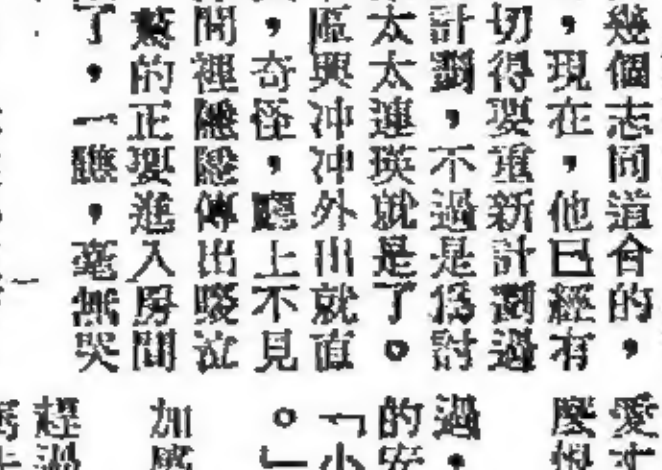 幾個志同道合的，
，現在，他已經有
切得要重新計劃過
計劃，不過是為討
太太連瑛就是了。
區興冲冲外出就直
，奇怪，廳上不見
間裡隱隱傳出啜泣
的正要進入房間
了，一瞧，毫無哭
愛才
麼
過，
的安
「小
。」
加
趕過